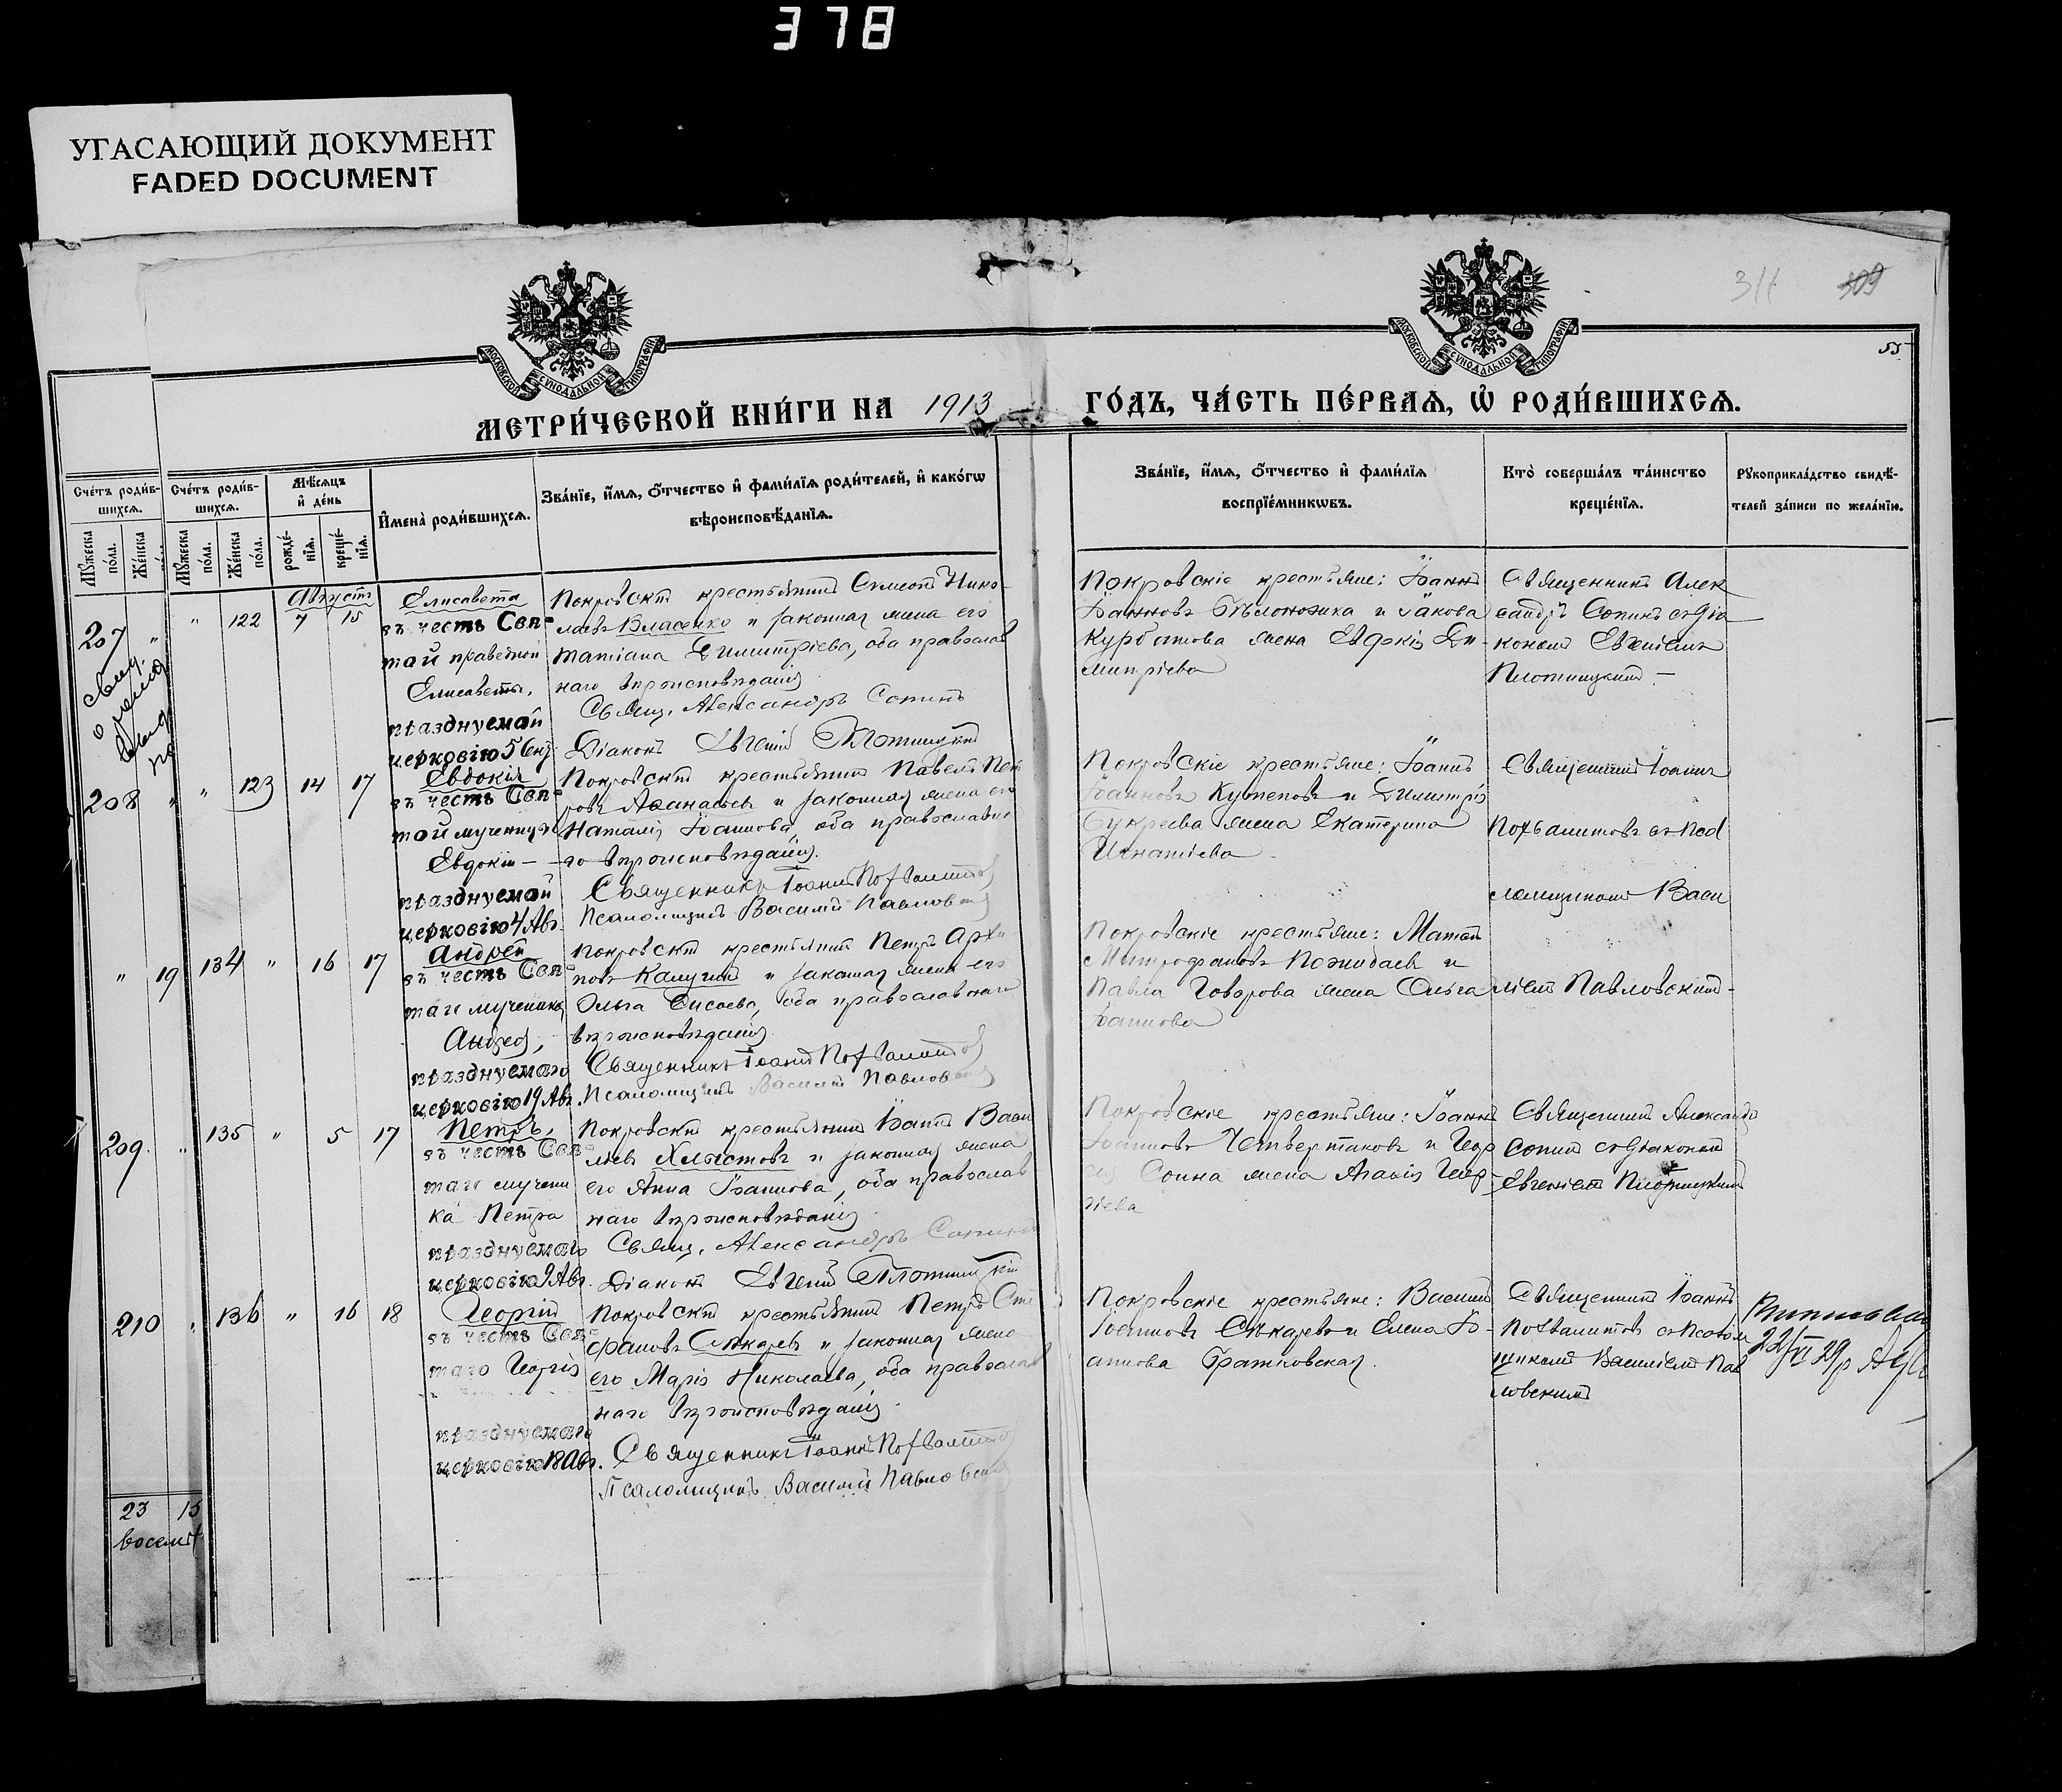 378
УГАСАЮЩИЙ ДОКУМЕНТ
FADED DOCUMENT
311 309
55
МОСКОВСКОЙ СѴНОДАЛЬНОЙ ТИПОГРАФІИ
МОСКОВСКОЙ СѴНОДАЛЬНОЙ ТИПОГРАФІИ
МЕТРИ́ЧЕСКОЙ КНИ́ГИ НА 1913 ГО́ДЪ, ЧА́СТЬ ПЕ́РВАѦ, Ѡ РОДИ́ВШИХСѦ.
Сче́тъ роди́в-
шихсѧ.
Мꙋ́жеска по́ла.
Же́нска
Сче́тъ роди́в-
шихсѧ.
Мꙋ́жеска по́ла.
Же́нска по́ла.
Мѣ́сѧцъ
и҆ де́нь
рожде́-
нїѧ.
креще́-
нїѧ.
И҆мена̀ роди́вшихсѧ.
Зва́нїе, и҆́мѧ, ѻ҆́тчество и҆ фами́лїѧ роди́телей, и҆ како́гѡ
вѣроисповѣ́данїѧ.
Зва́нїе, и҆́мѧ, ѻ҆́тчество и҆ фами́лїѧ
воспрїе́мникѡвъ.
Кто̀ соверша́лъ та́инство
креще́нїѧ.
Рꙋкоприкла́дство свидѣ́-
телей за́писи по жела́нїю.
207 "
208 "
" 19
209 "
210 "
23 15
Августъ
" 122 7 15
Елисавета
въ честь Свя-
той праведной
Елисаветы,
празднуемой
церковію 5 Сент.
Покровскій крестьянинъ Симеонъ Нико-
лаевъ Власенко и законная жена его
Татіана Димитріева, оба православ
наго вѣроисповѣданія.
Свящ. Александръ Сопинъ
Діаконъ Евгеній Плотницкій
Покровскіе крестьяне: Іоаннъ
Іоанновъ Бѣлоножка и Іакова
Курбатова жена Евдокія Ди-
митріева
Священникъ Алек
сандръ Сопинъ съ діа
кономъ Евгеніемъ
Плотницкимъ —
" 123 14 17
Евдокія
въ честь Свя-
той мученицы
Евдокіи —
празднуемой
церковію 4 Авг.
Покровскій крестьянинъ Павелъ Пет
ровъ Аѳанасьевъ и законная жена его
Наталія Іоаннова, оба православна
го вѣроисповѣданія.
Священникъ Іоаннъ Похвалитовъ
Псаломщикъ Василій Павловскій
Покровскіе крестьяне: Іоаннъ
Іоанновъ Кутеповъ и Димитрія
Букреева жена Екатерина
Игнатіева
Священникъ Іоаннъ
Похвалитовъ съ Пса
ломщикомъ Васи
ліемъ Павловскимъ -
134 " 16 17
Андрей
въ честь Свя-
таго мученика
Андрея,
празднуемаго
церковію 19 Авг.
Покровскій крестьянинъ Петръ Архи
повъ Калугинъ и законная жена его
Ольга Сисоева, оба православнаго
вѣроисповѣданія.
Священникъ Іоаннъ Похвалитовъ
Псаломщикъ Василій Павловскій
Покровскіе крестьяне: Матѳей
Митрофановъ Пожидаевъ и
Павла Говорова жена Ольга
Іоаннова
135 " 5 17
Петръ,
въ честь Свя-
таго мучени
ка Петра
празднуемаго
церковію 9 Авг.
Покровскій крестьянинъ Іоаннъ Васи
льевъ Хлыстовъ и законная жена
его Анна Іоаннова, оба православ
наго вѣроисповѣданія.
Свящ. Александръ Сопинъ
Діаконъ Евгеній Плотницкій
Покровскіе крестьяне: Іоаннъ
Іоанновъ Четвертаковъ и Геор
гія Сонна жена Агаѳія Геор-
гіева
Священникъ Александръ
Сопинъ съ діакономъ
Евгеніемъ Плотницкимъ
136 " 16 18
Георгій
въ честь Свя-
таго Георгія
празднуемаго
церковію 18 Авг.
Покровскій крестьянинъ Петръ Сте
фановъ Слѣкаревъ и законная жена
его Марія Николаева, оба православ
наго вѣроисповѣданія.
Священникъ Іоаннъ Похвалитовъ
Псаломщикъ Василій Павловскій
Покровскіе крестьяне: Василій
Іоанновъ Слѣкаревъ и Елена Іо-
аннова Братковская.
Священникъ Іоаннъ
Похвалитовъ съ Псалом
щикомъ Василіемъ Пав
ловскимъ